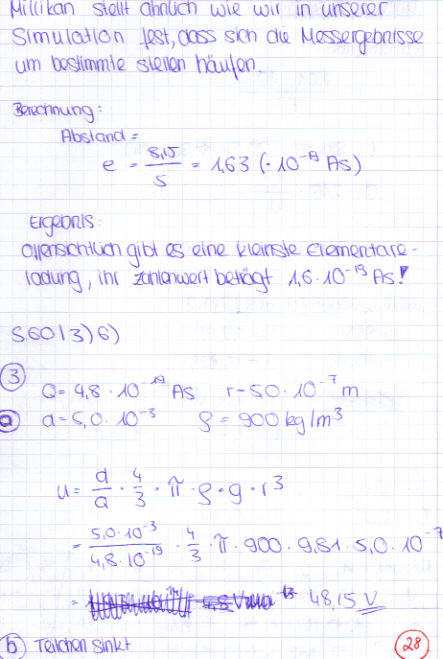 Millikan stellt ähnlich wie wir in unserer
Simulation fest, dass sich die Messergebnisse
um bestimmte stellen häufen.
Berechnung:
Abstand =
e = 8,15 / 5 = 1,63 (· 10⁻¹⁹ As)
Ergebnis:
offensichtlich gibt es eine kleinste Elementare-
ladung, ihr Zahlenwert beträgt 1,6 · 10⁻¹⁹ As!
S.60 / 3) 6)
③ Q = 4,8 · 10⁻¹⁹ As r = 5.0 · 10⁻⁷ m
ⓐ d = 5,0 · 10⁻³ ρ = 900 kg/m³
U = d/Q · 4/3 · π · ρ · g · r³
= 5,0 · 10⁻³ / 4,8 · 10⁻¹⁹ · 4/3 · π · 900 · 9,81 · 5,0 · 10⁻⁷
= 48,15 V
ⓑ Teilchen sinkt
28